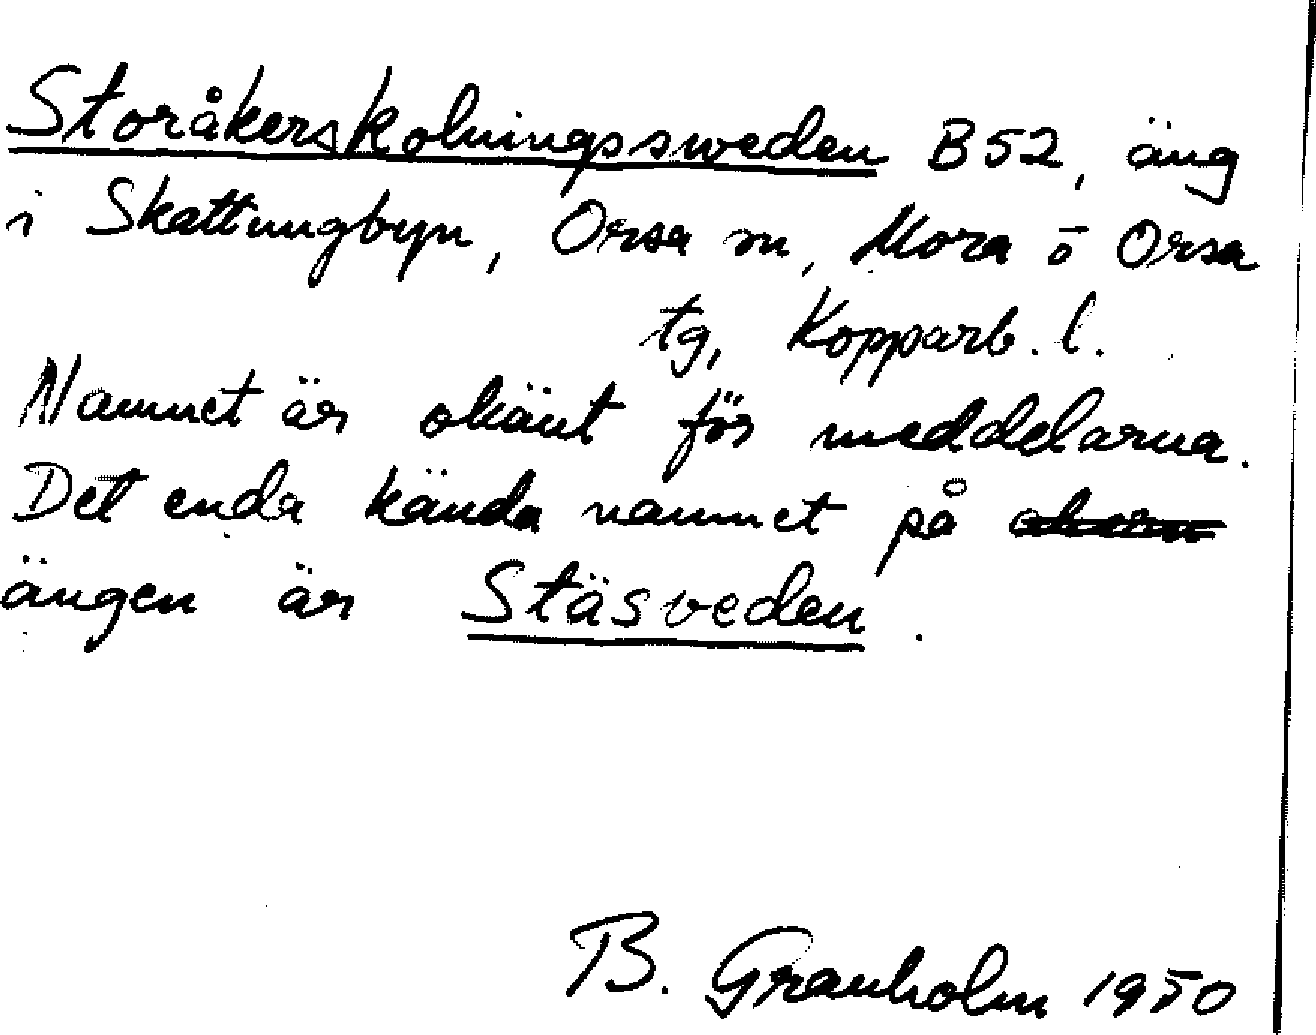 Storåkerskolningssweden B52, äng
i Skattungbyn, Orsa sn, Mora o Orsa
tg, Kopparb. l.
Namnet är okänt för meddelarna.
Det enda kända namnet på
ängen är Stäsveden.
B. Granholm 1950